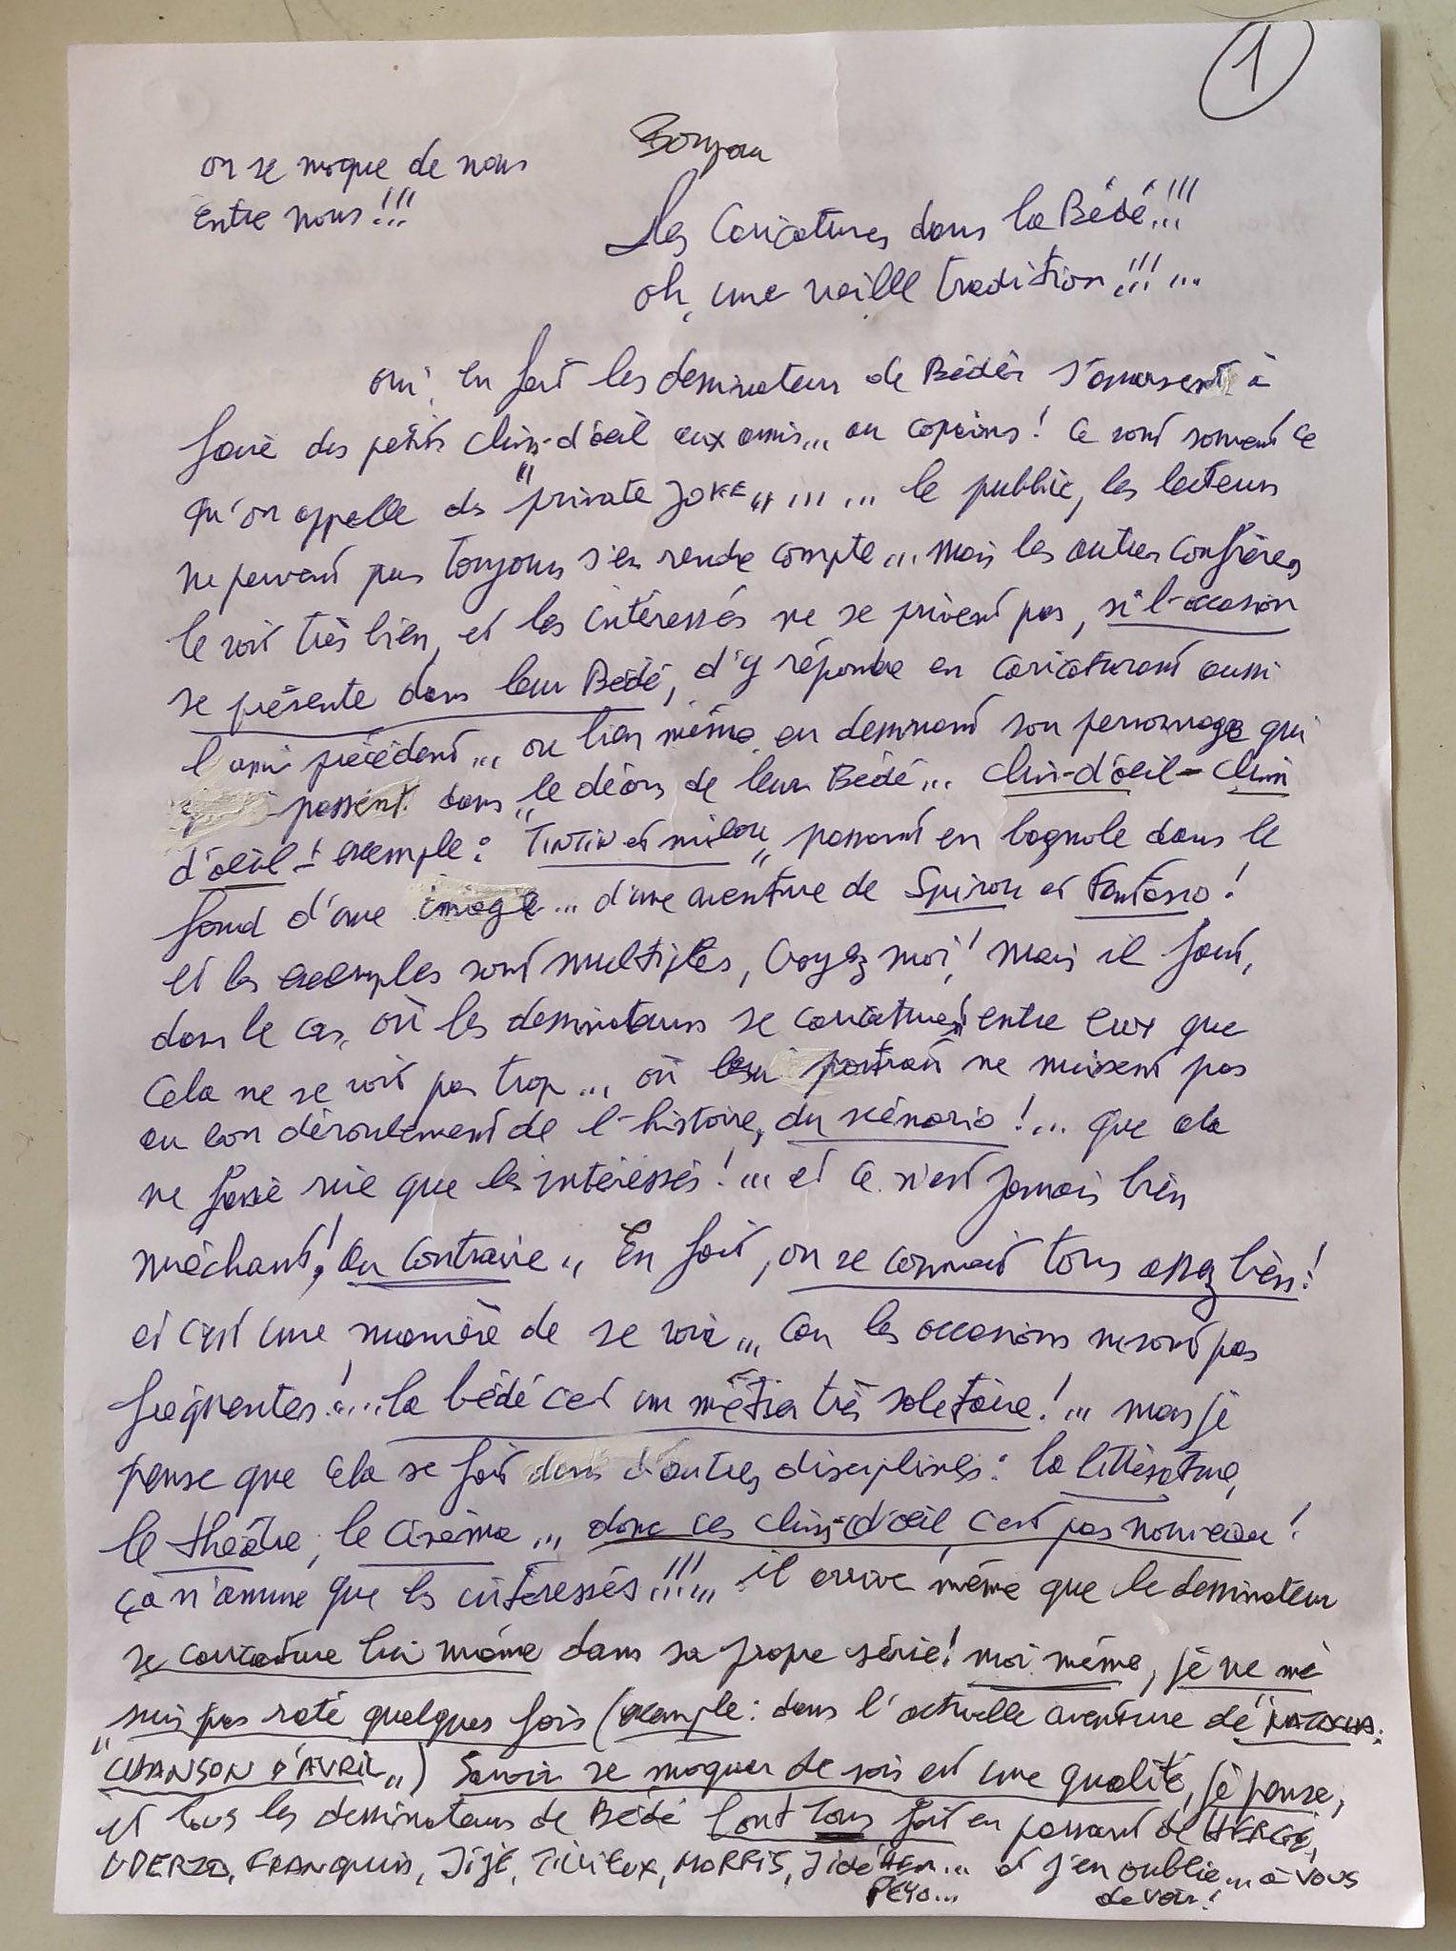 1
Bonjour
on se moque de nous
Entre nous!!!
Les Caricatures dans la Bédé!!!
oh, une vieille tradition!!!...
oui, en fait les dessinateurs de Bédés s'amusent à
faire des petits clins-d'œil aux amis... ou copains! ce sont souvent ce
qu'on appelle des "private JOKE"...... le public, les lecteurs
ne peuvent pas toujours s'en rendre compte... mais les autres confrères
le voit très bien, et les intéressés ne se privent pas, si l'occasion
se présente dans leur Bédé, d'y répondre en caricaturant aussi
l'ami précédent... ou bien même en dessinant son personnage qui
passent dans le décors de leur Bédé... clin-d'œil-clin
d'œil! exemple: "TINTIN et milou" passant en bagnole dans le
fond d'une image... d'une aventure de Spirou et Fantasio!
et les exemples sont multiples, croyez moi! mais il faut,
dans le cas, où les dessinateurs se caricaturent entre eux que
cela ne se voit pas trop... où leur portrait ne nuisent pas
au bon déroulement de l'histoire, du scénario!... que cela
ne fasse rire que les intéressés!... et ce n'est jamais bien
méchant! au contraire.. En fait, on se connait tous assez bien!
et c'est une manière de se voir... car les occasions ne sont pas
fréquentes!... la bédé c'est un métier très solitaire!... mais je
pense que cela se fait dans d'autres disciplines: la littérature,
le théâtre, le cinéma... donc ces clins-d'œil, c'est pas nouveau!
ça n'amuse que les intéressés!!!... il arrive même que le dessinateur
se caricature lui même dans sa propre série! moi même, je ne me
suis pas raté quelques fois (exemple: dans l'actuelle aventure de NATACHA:
"CHANSON D'AVRIL") Savoir se moquer de soi est une qualité, je pense,
et tous les dessinateurs de Bédé l'ont tous fait en passant de HERGÉ,
UDERZO, FRANQUIN, JIJÉ, TILLIEUX, MORRIS, Jidéhem... et j'en oublie... à vous
PEYO... de voir!